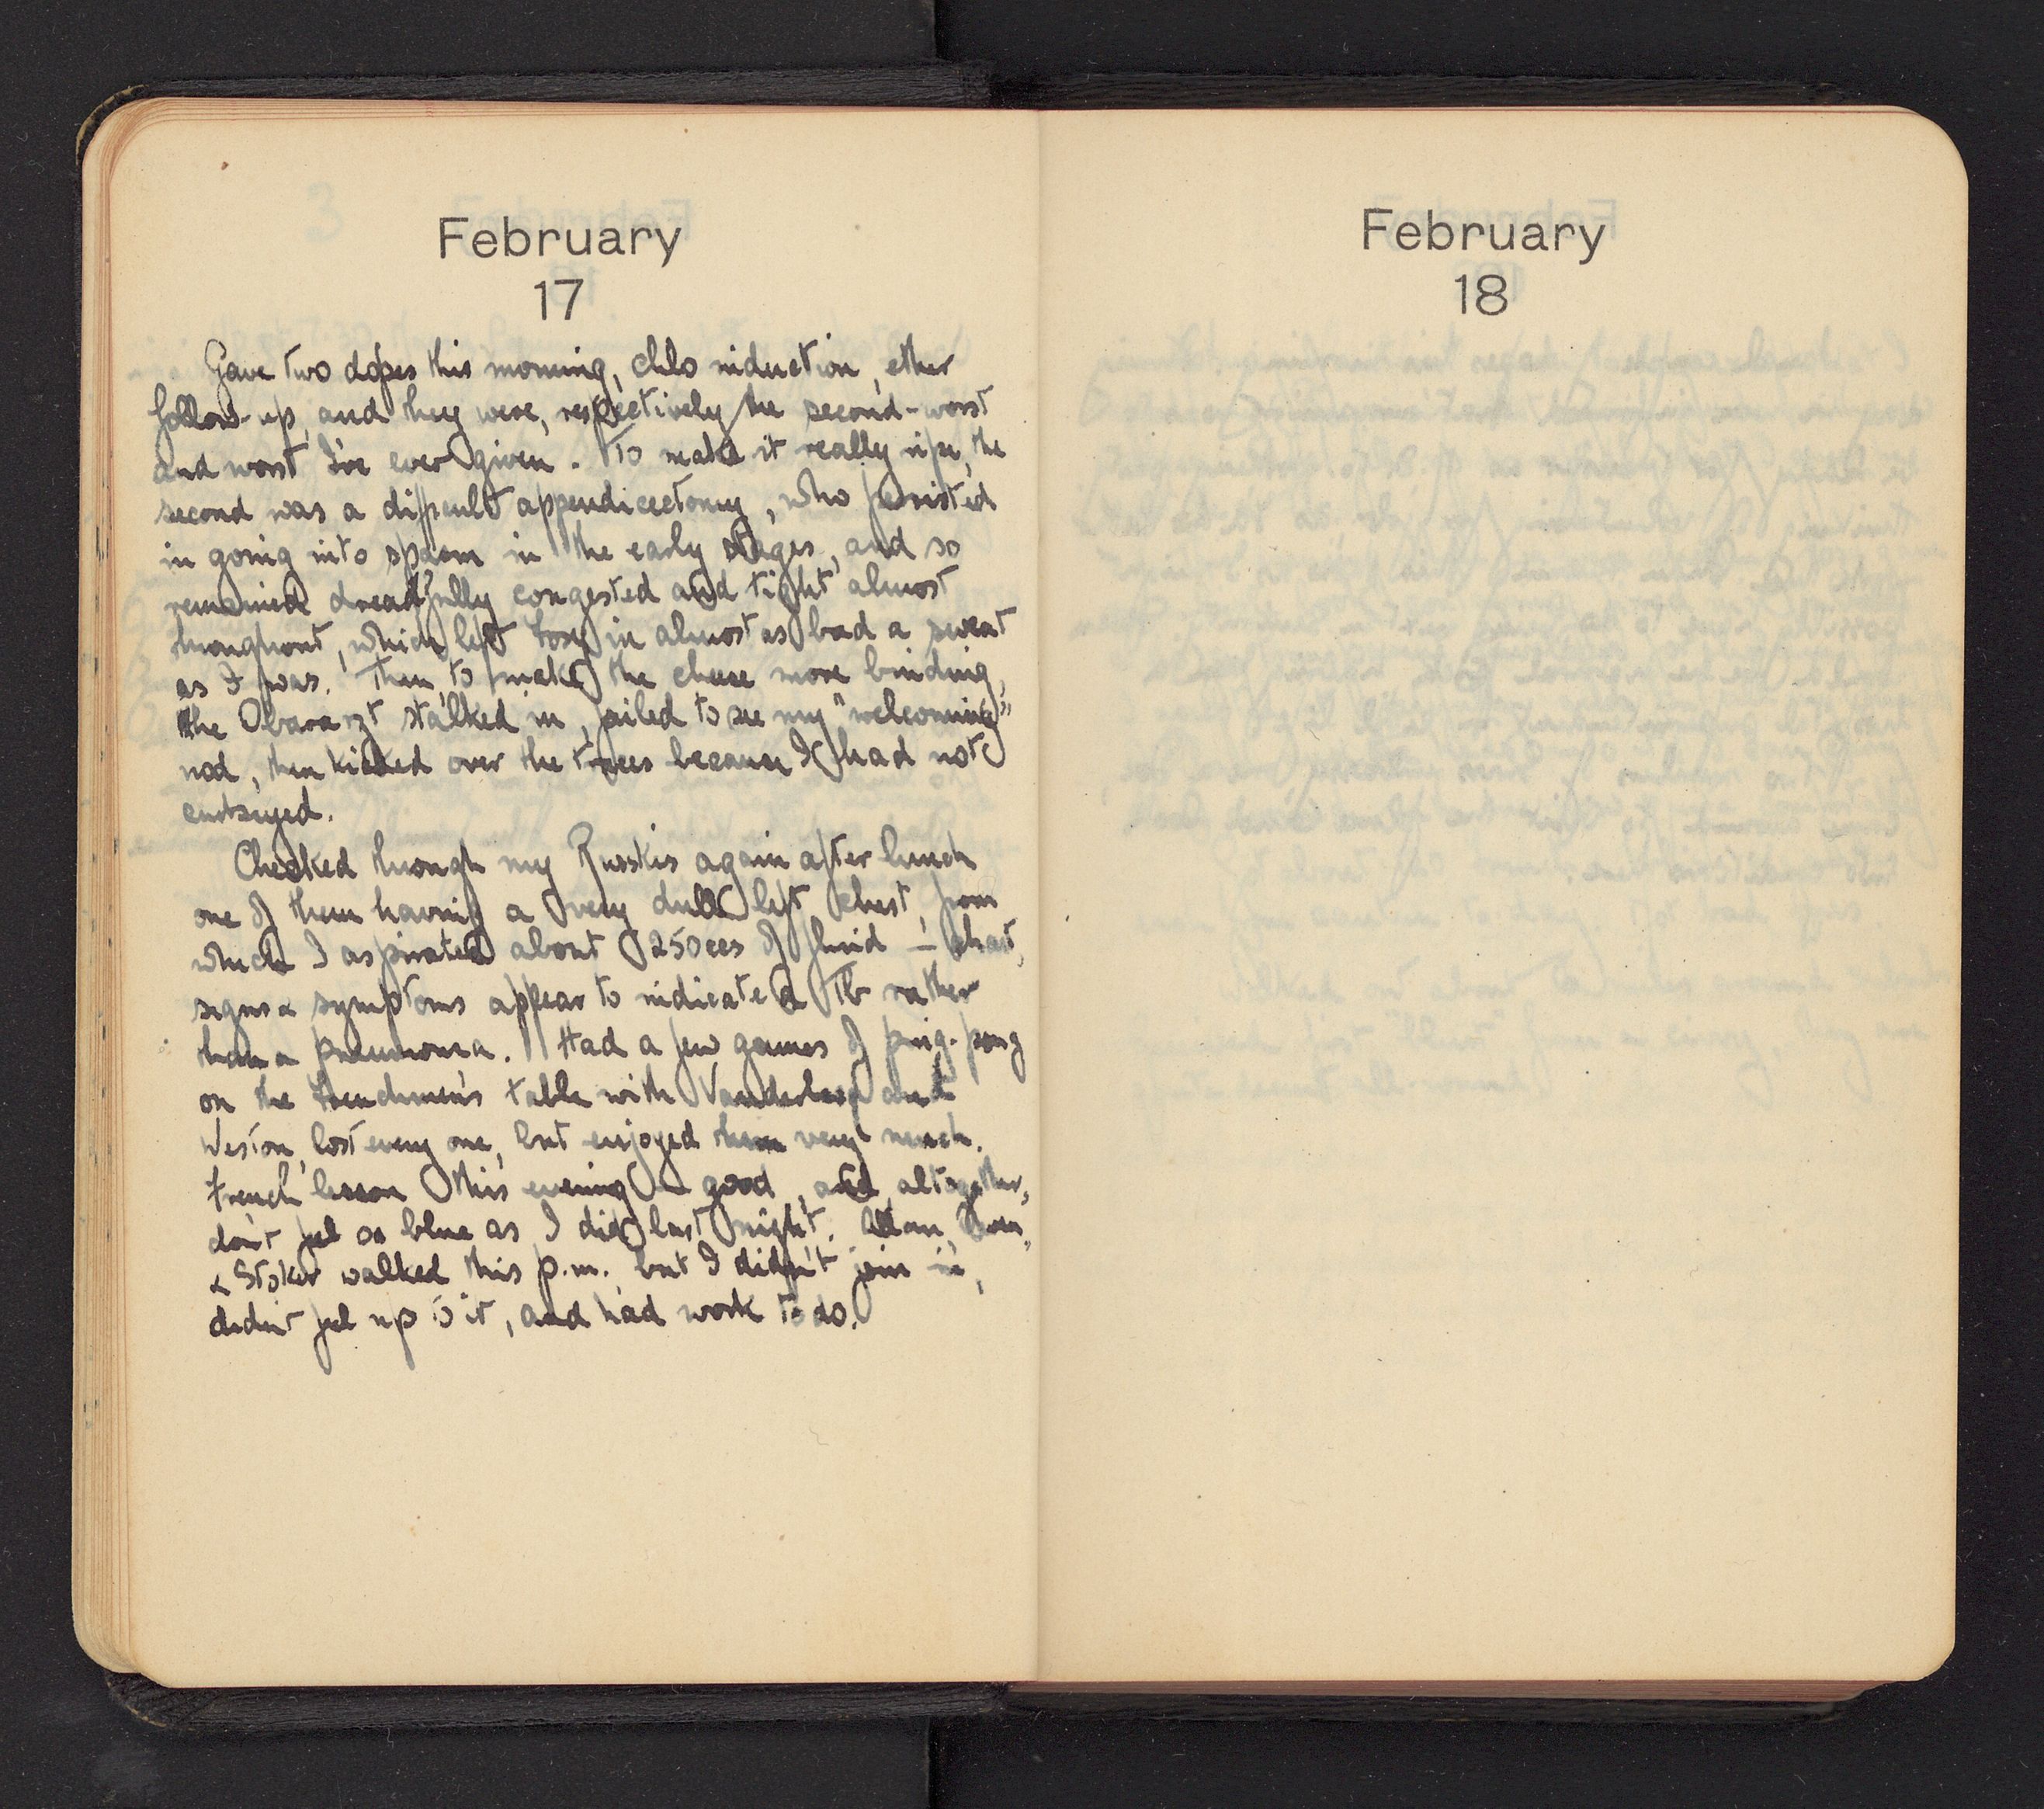 February
17
Gave two dopes this morning, chlo induction, ether
follow-up, and they were, respectively the second-worst
and worst I've ever given. To make it really ripe, the
second was a difficult appendicectomy, who persisted
in going into spasm in the early stages, and so
remained dreadfully congested and tight almost
throughout, which left in almost as bad a sweat
as I was. Then, to make the cheese more binding,
the Obararzt stalked in, failed to see my "welcoming"
nod, then kicked over the traces because I had not

Checked through my Russkis again after lunch
one of them having a very dull left chest, from
which I aspirated about 250ccs of fluid –
signs & symptoms appear to indicate a Tb rather
than a pneumonia. Had a few games of ping-pong
on the Frenchmen's table with and
Weston, lost every one, but enjoyed them very much.
French lesson this evening good, and altogether,
don't feel so blue as I did last night. Allan,
& Stoker walked this p.m. but I didn't join in,
didn't feel up to it, and had work to do.
February
18